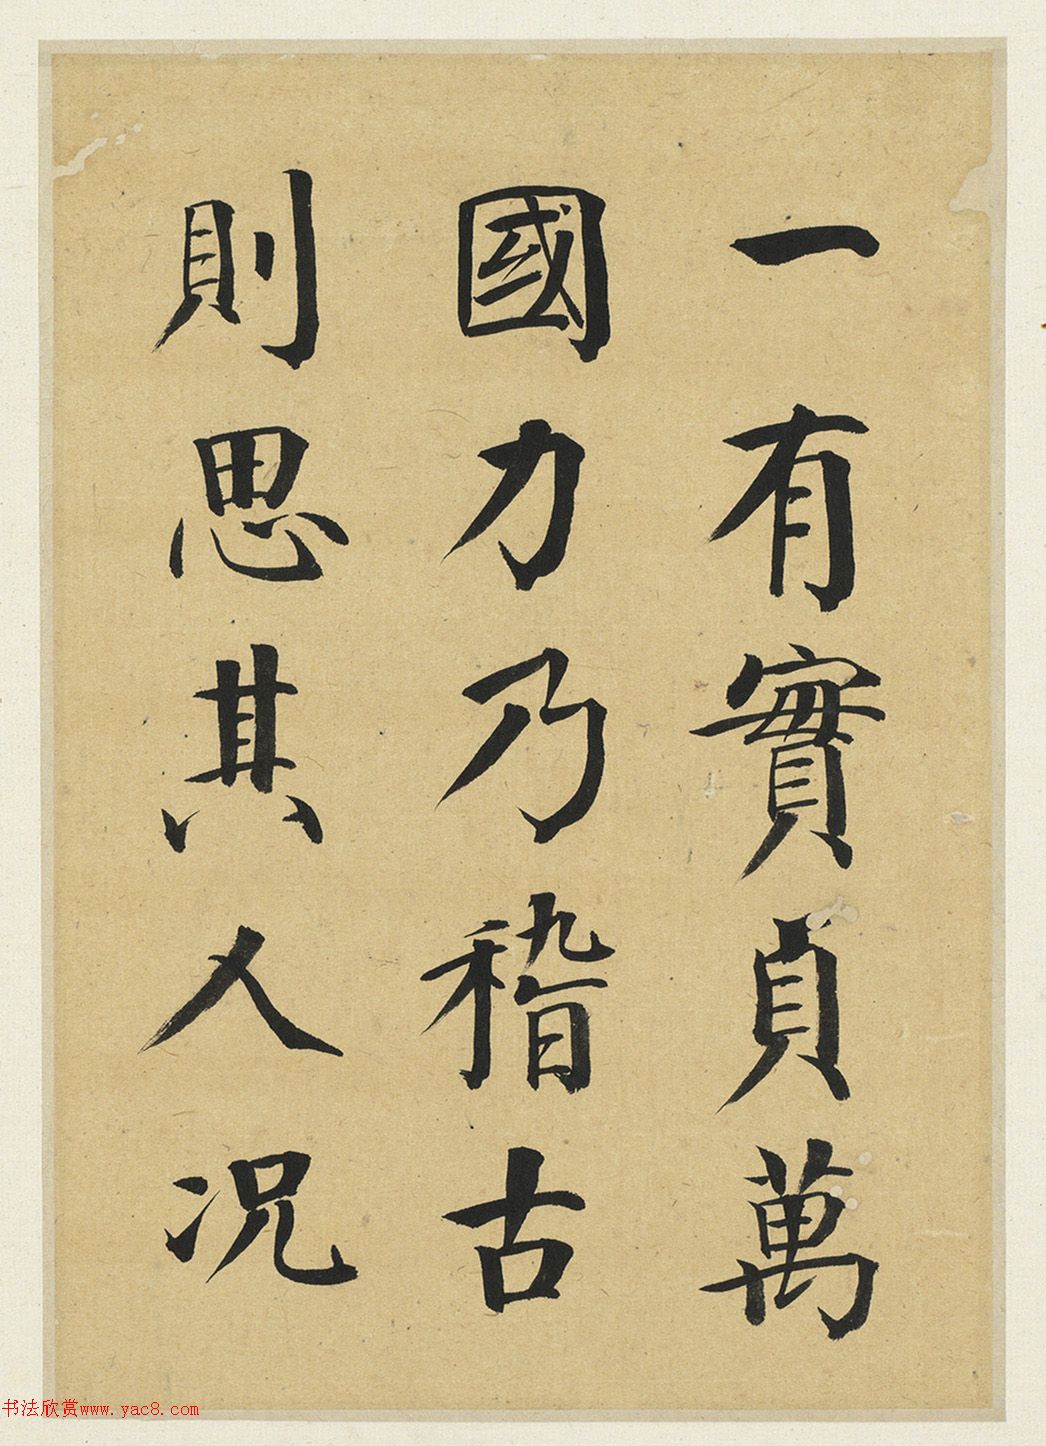 一有實貞萬
國力乃稽古
則思其人况
书法欣赏www.yac8.com